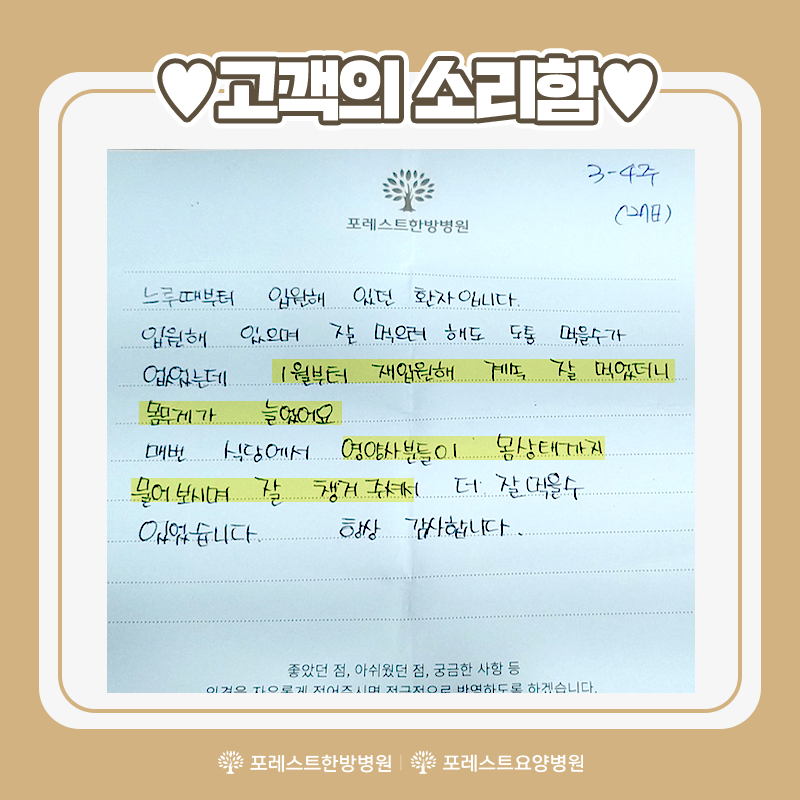 ♥고객의 소리함♥
3-4주
포레스트한방병원
느루때부터 입원해 있던 환자입니다.
입원해 있으며 잘 먹으려 해도 도통 먹을수가
없었는데 1월부터 재입원해 계속 잘 먹었더니
몸무게가 늘었어요
매번 식당에서 영양사분들이 몸상태까지
물어보시며 잘 챙겨주셔서 더 잘먹을수
있었습니다. 항상 감사합니다.
좋았던 점, 아쉬웠던 점, 궁금한 사항 등
의견을 자유롭게 적어주시면 적극적으로 반영하도록 하겠습니다.
포레스트한방병원 | 포레스트요양병원